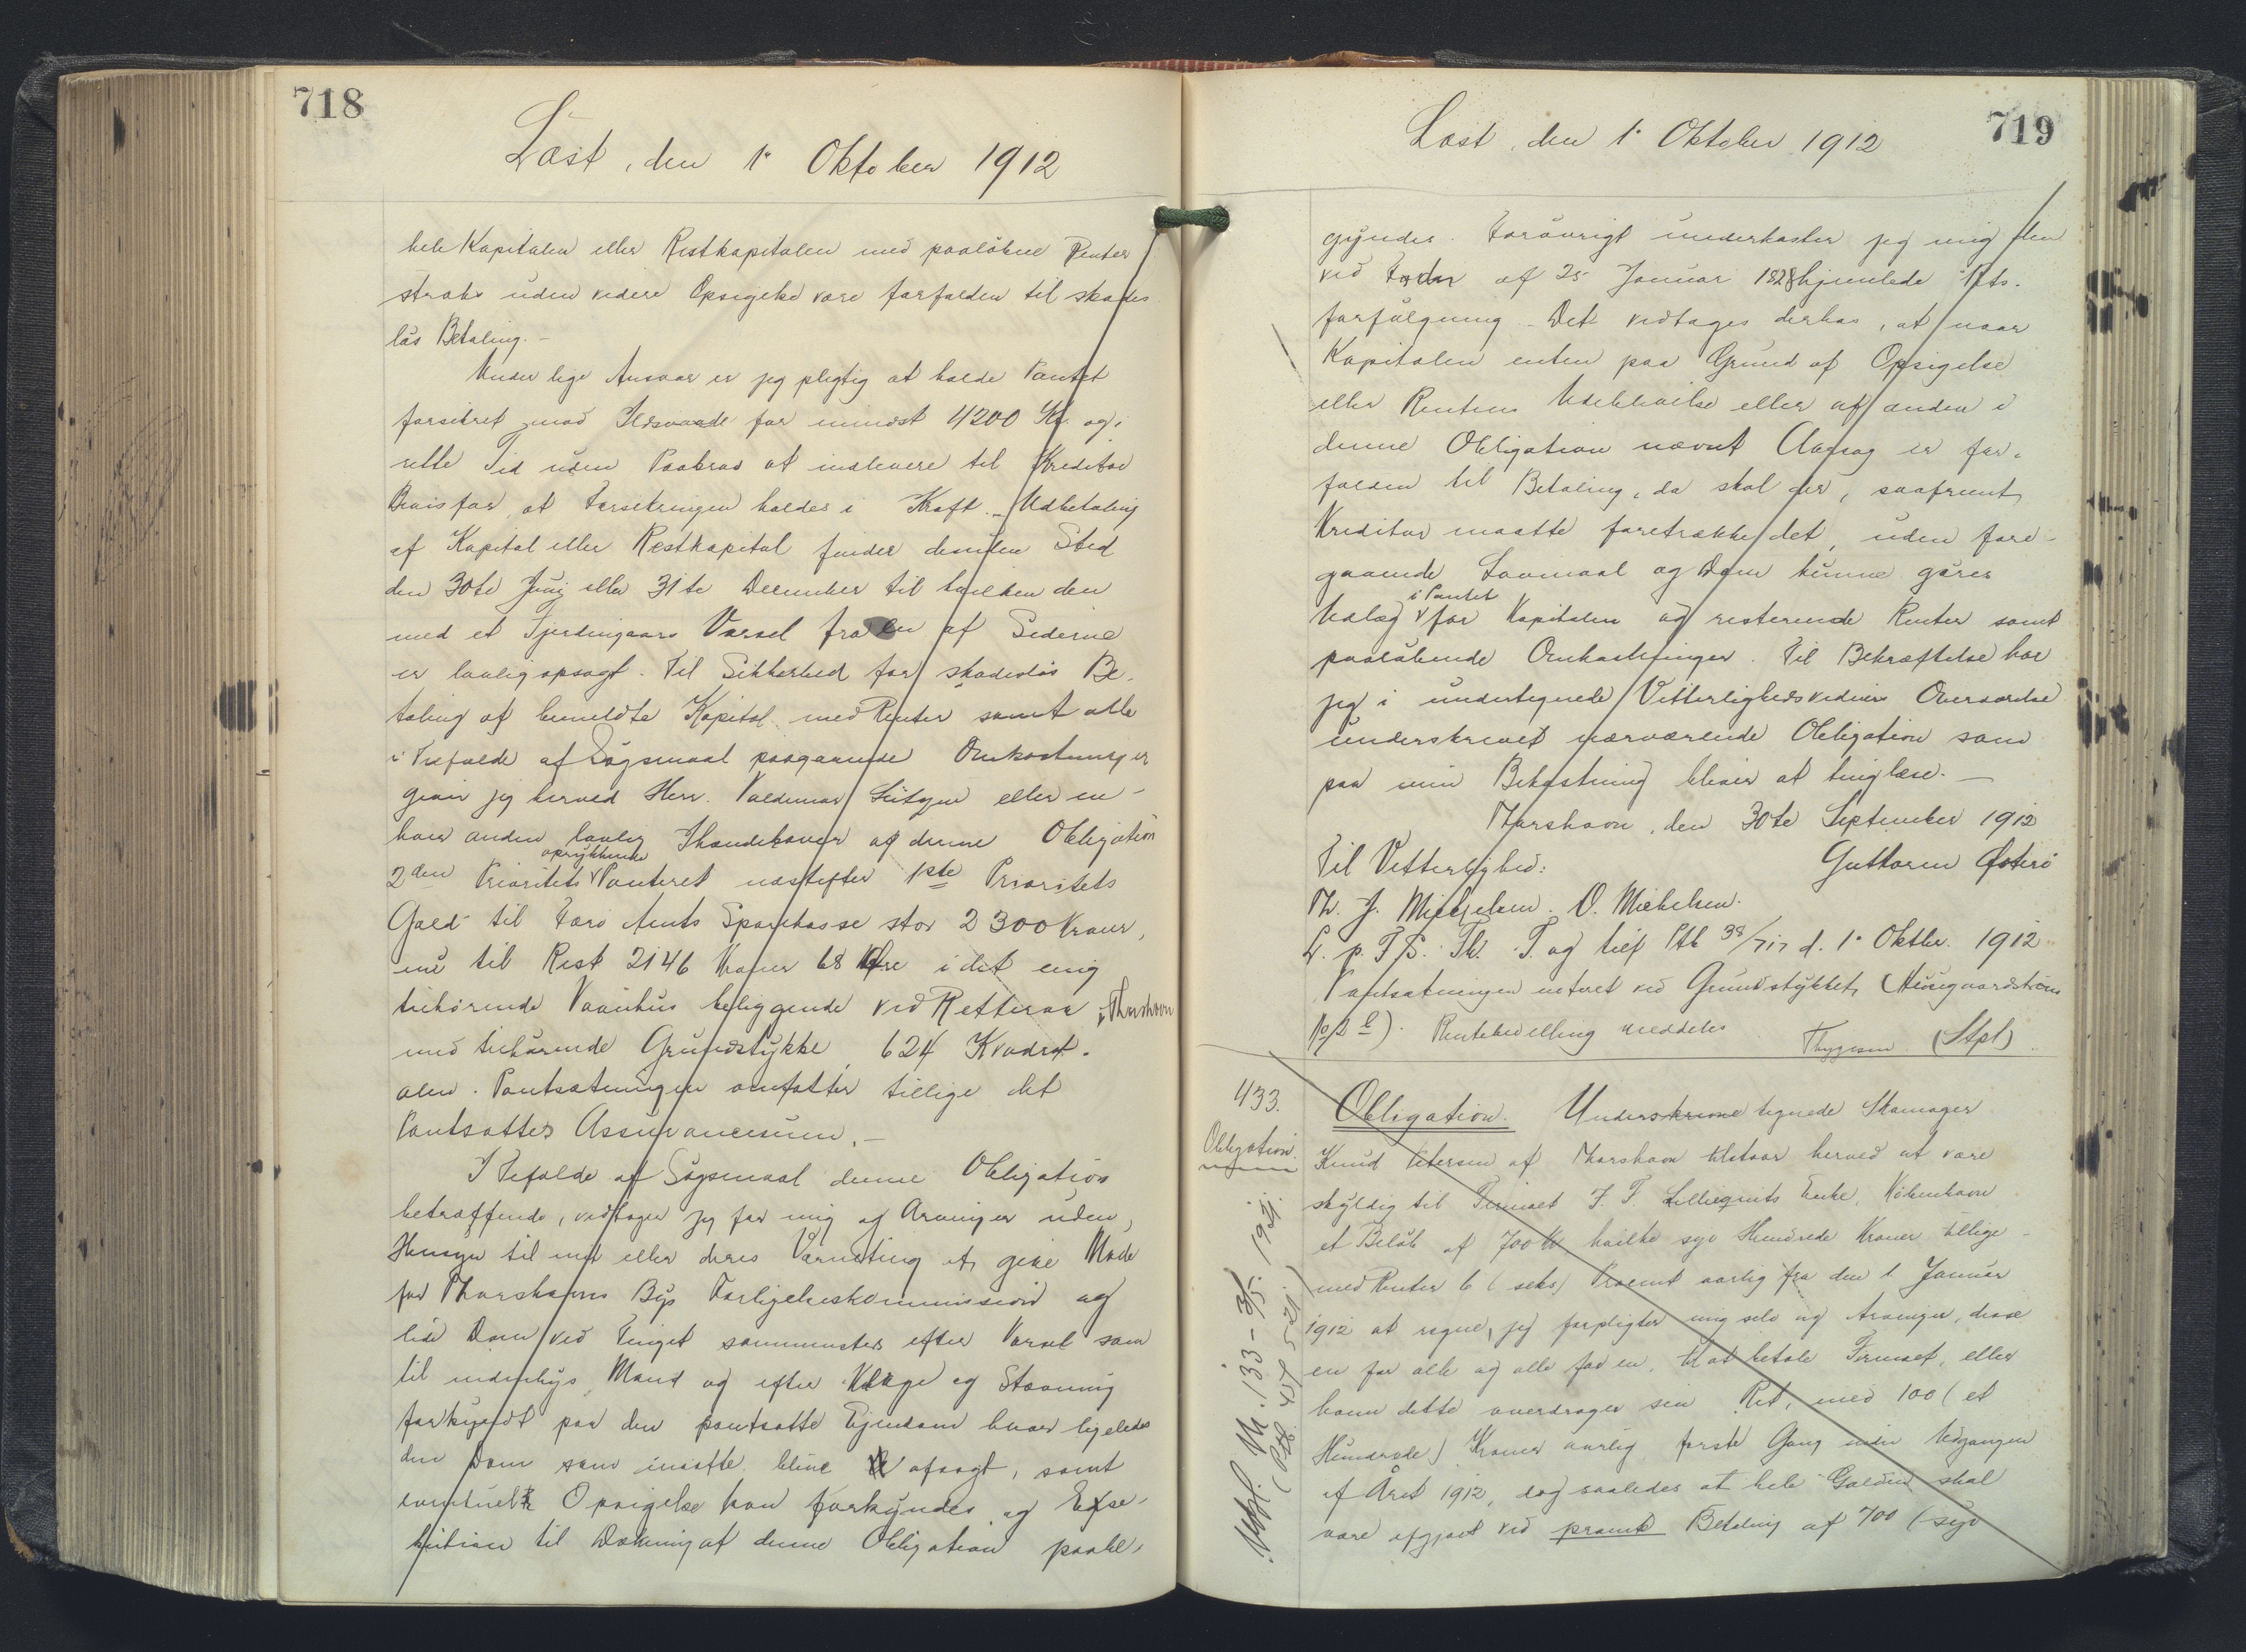 718
Læst, den 1ᵉ Oktober 1912
hele Kapitalen eller Restkapitalen med paaløbne Renter
straks uden videre Opsigelse være forfalden til skades
løs Betaling.-
Under lige Ansvar er jeg pligtig at holde Pantet
forsikret mod Ildsvaade for mindst 4200 Kr. og i
rette Tid uden Paakrav at indlevere til Kreditor
Bevis for, at Forsikringen holdes i Kraft. - Udbetaling
af Kapital eller Restkapital finder desuden Sted
den 30te Juni eller 31te December til hvilken den
med et Fjerdingaars Varsel fra en af Siderne
er lovlig opsagt. Til Sikkerhed for skadesløs Be-
taling af bemeldte Kapital med Renter samt alle
i Tilfælde af Søgsmaal paagaaende Omkostninger
giver jeg herved Herr. Valdemar Lützen eller en-
hver anden lovlig Ihændehaver af denne Obligation
2den Prioritets oprykkende Panteret næstefter 1ste Prioritets
Gæld til Færø Amts Sparekasse stor 2300 Kroner,
nu til Rest 2146 Kroner 68 Øre i det mig
tilhørende Vaanhus beliggende ved Retteraa i Thorshavn
med tilhørende Grundstykke, 624 Kvadrat-
alen. Pantsætningen omfatter tillige det
Pantsattes Assurancesum.-
I Tilfælde af Søgsmaal denne Obligation
betræffende, vedtager jeg for mig og Arvinger uden
Hensyn til mit eller deres Værneting at give Møde
for Thorshavns Bys Forligelseskommission og
lide Dom ved Tinget sammesteds efter Varsel som
til indenbys Mand og efter Klage og Stævning
forkyndt paa den pantsatte Ejendom hvor ligeledes
den Dom som maatte blive afsagt, samt
eventuel Opsigelse kan forkyndes og Ekse-
kution til Dækning af denne Obligation paabe-
719
Læst, den 1ᵉ Oktober 1912
gyndes. Forøvrigt underkaster jeg mig den
ved Fordn af 25 Januar 1828 hjemlede Rets-
forfølgning. Det vedtages derhos, at naar
Kapitalen enten paa Grund af Opsigelse
eller Rentens Udeblivelse eller af anden i
denne Obligation nævnt Aarsag er for-
falden til Betaling, da skal der, saafremt
Kreditor maatte foretrække det, uden fore-
gaaende Lovmaal og Dom kunne gøres
Udlæg i Pantet for Kapitalen og resterende Renter samt
paaløbende Omkostninger. Til Bekræftelse har
jeg i undertegnede Vitterlighedsvidners Overværelse
underskrevet nærværende Obligation som
paa min Bekostning bliver at tinglæse.-
Thorshavn, den 30te September 1912
Til Vitterlighed: Guttorm Østerø
Th. J. Mikkelsen. O. Mikkelsen.
L. p. T/S. Th. T. og tilf Ptb 38/717 d. 1ᵉ Oktbr. 1912
Pantsætningen noteret ved Grundstykket (Husgaardstrøm
No 2 l). Rentebevilling meddeles. Thygesen (Stpl)
433.
Obligation
Udsl. M. 133 - 3/5. 1921.
(Ptb 45 / 521)
Obligation. Underskrevne tegnede Skomager
Knud Petersen af Thorshavn tilstaar herved at være
skyldig til Firmaet J. F. Lilliequists Enke, København
et Beløb af 700 Kr hvilke syv Hundrede Kroner tillige-
med Renter 6 (seks) Procent aarlig fra den 1 Januar
1912 at regne, jeg forpligter mig selv og Arvinger, disse
en for alle og alle for en, til at betale Firmaet, eller
hvem dette overdrager sin Ret, med 100 (et
Hundrede) Kroner aarlig første Gang inden Udgangen
af Året 1912, dog saaledes at hele Gælden skal
være afgjort ved prompt Betaling af 700 (syv